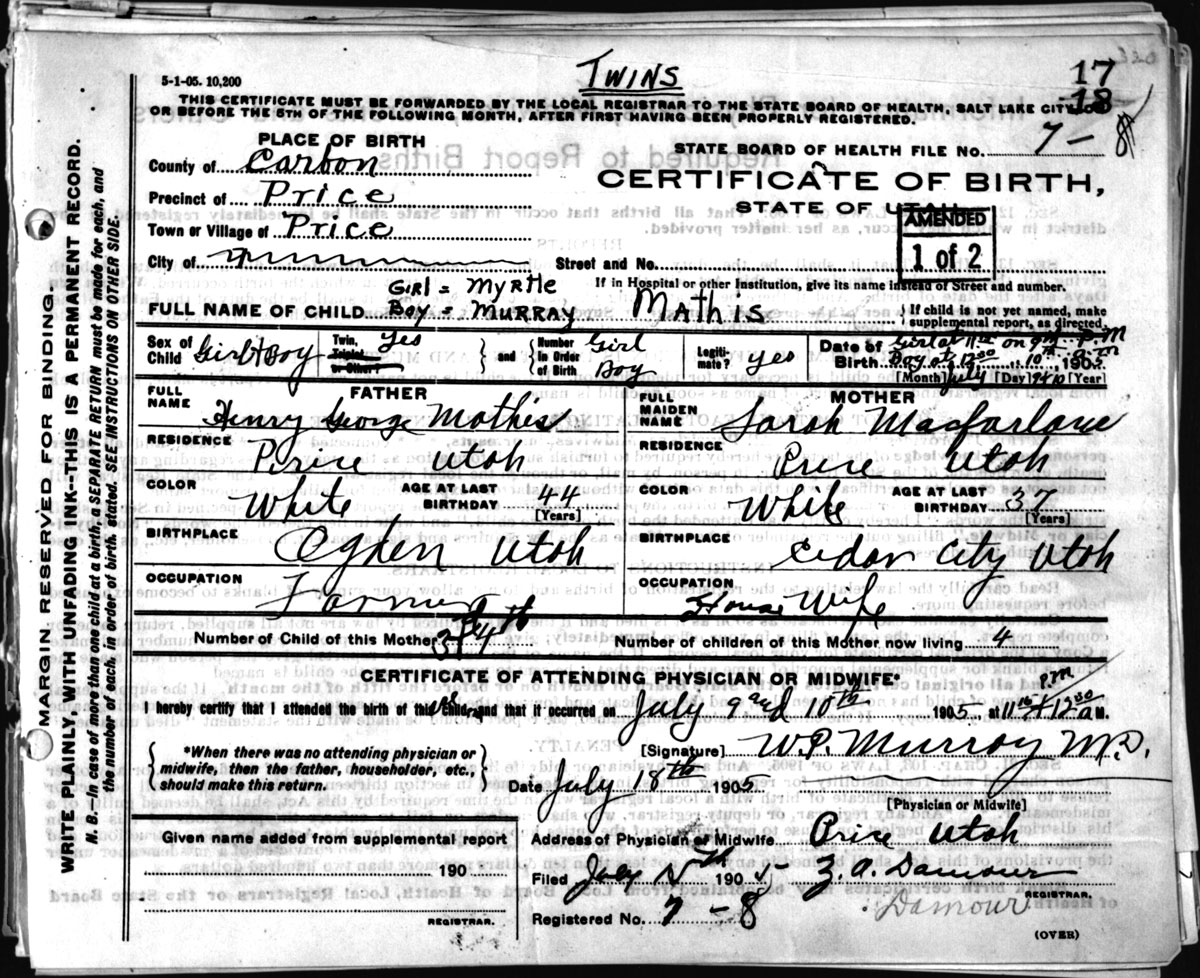 TWINS
17
18
5-1-05. 10,200
THIS CERTIFICATE MUST BE FORWARDED BY THE LOCAL REGISTRAR TO THE STATE BOARD OF HEALTH, SALT LAKE CITY, ON
OR BEFORE THE 5TH OF THE FOLLOWING MONTH, AFTER FIRST HAVING BEEN PROPERLY REGISTERED.
PLACE OF BIRTH
STATE BOARD OF HEALTH FILE NO. 7-8
County of Carbon
CERTIFICATE OF BIRTH,
Precinct of Price
STATE OF UTAH
AMENDED
1 of 2
Town or Village of Price
City of
Street and No.
If in Hospital or other Institution, give its name instead of Street and number.
GIRL = MYRTLE
FULL NAME OF CHILD BOY = MURRAY Mathis
{ If child is not yet named, make supplemental report, as directed.
Sex of Child Girl & Boy
Twin, Triplet, or Other? Yes
and
Number in Order of Birth Girl Boy
Legiti-mate? yes
Date of Birth Girl at 11 on 9th P.M
Boy at 12 10th a.m 1905
[Month] July [Day] 9 & 10 [Year]
FATHER
FULL NAME Henry George Mathis
MOTHER
FULL MAIDEN NAME Sarah Macfarlane
RESIDENCE Price Utah
RESIDENCE Price Utah
COLOR White AGE AT LAST BIRTHDAY 44 [Years]
COLOR White AGE AT LAST BIRTHDAY 37 [Years]
BIRTHPLACE Ogden Utah
BIRTHPLACE Cedar City Utah
OCCUPATION Farmer
OCCUPATION House Wife
Number of Child of this Mother 3 & 4th
Number of children of this Mother now living 4
CERTIFICATE OF ATTENDING PHYSICIAN OR MIDWIFE*
I hereby certify that I attended the birth of this child, and that it occurred on July 9 and 10th 1905 at P.M. 12 A M.
{ *When there was no attending physician or midwife, then the father, householder, etc., should make this return. }
[Signature] W.P. Murray M.D.
Date July 18th 1905
[Physician or Midwife]
Given name added from supplemental report
190
REGISTRAR.
Address of Physician or Midwife Price Utah
Filed July 190 Z.A. Damour
REGISTRAR.
Damour
Registered No. 7-8
(OVER)
MARGIN RESERVED FOR BINDING.
WRITE PLAINLY WITH UNFADING INK--THIS IS A PERMANENT RECORD.
N. B.—In case of more than one child at a birth, a SEPARATE RETURN must be made for each, and
the number of each, in order of birth, stated. SEE INSTRUCTIONS ON OTHER SIDE.